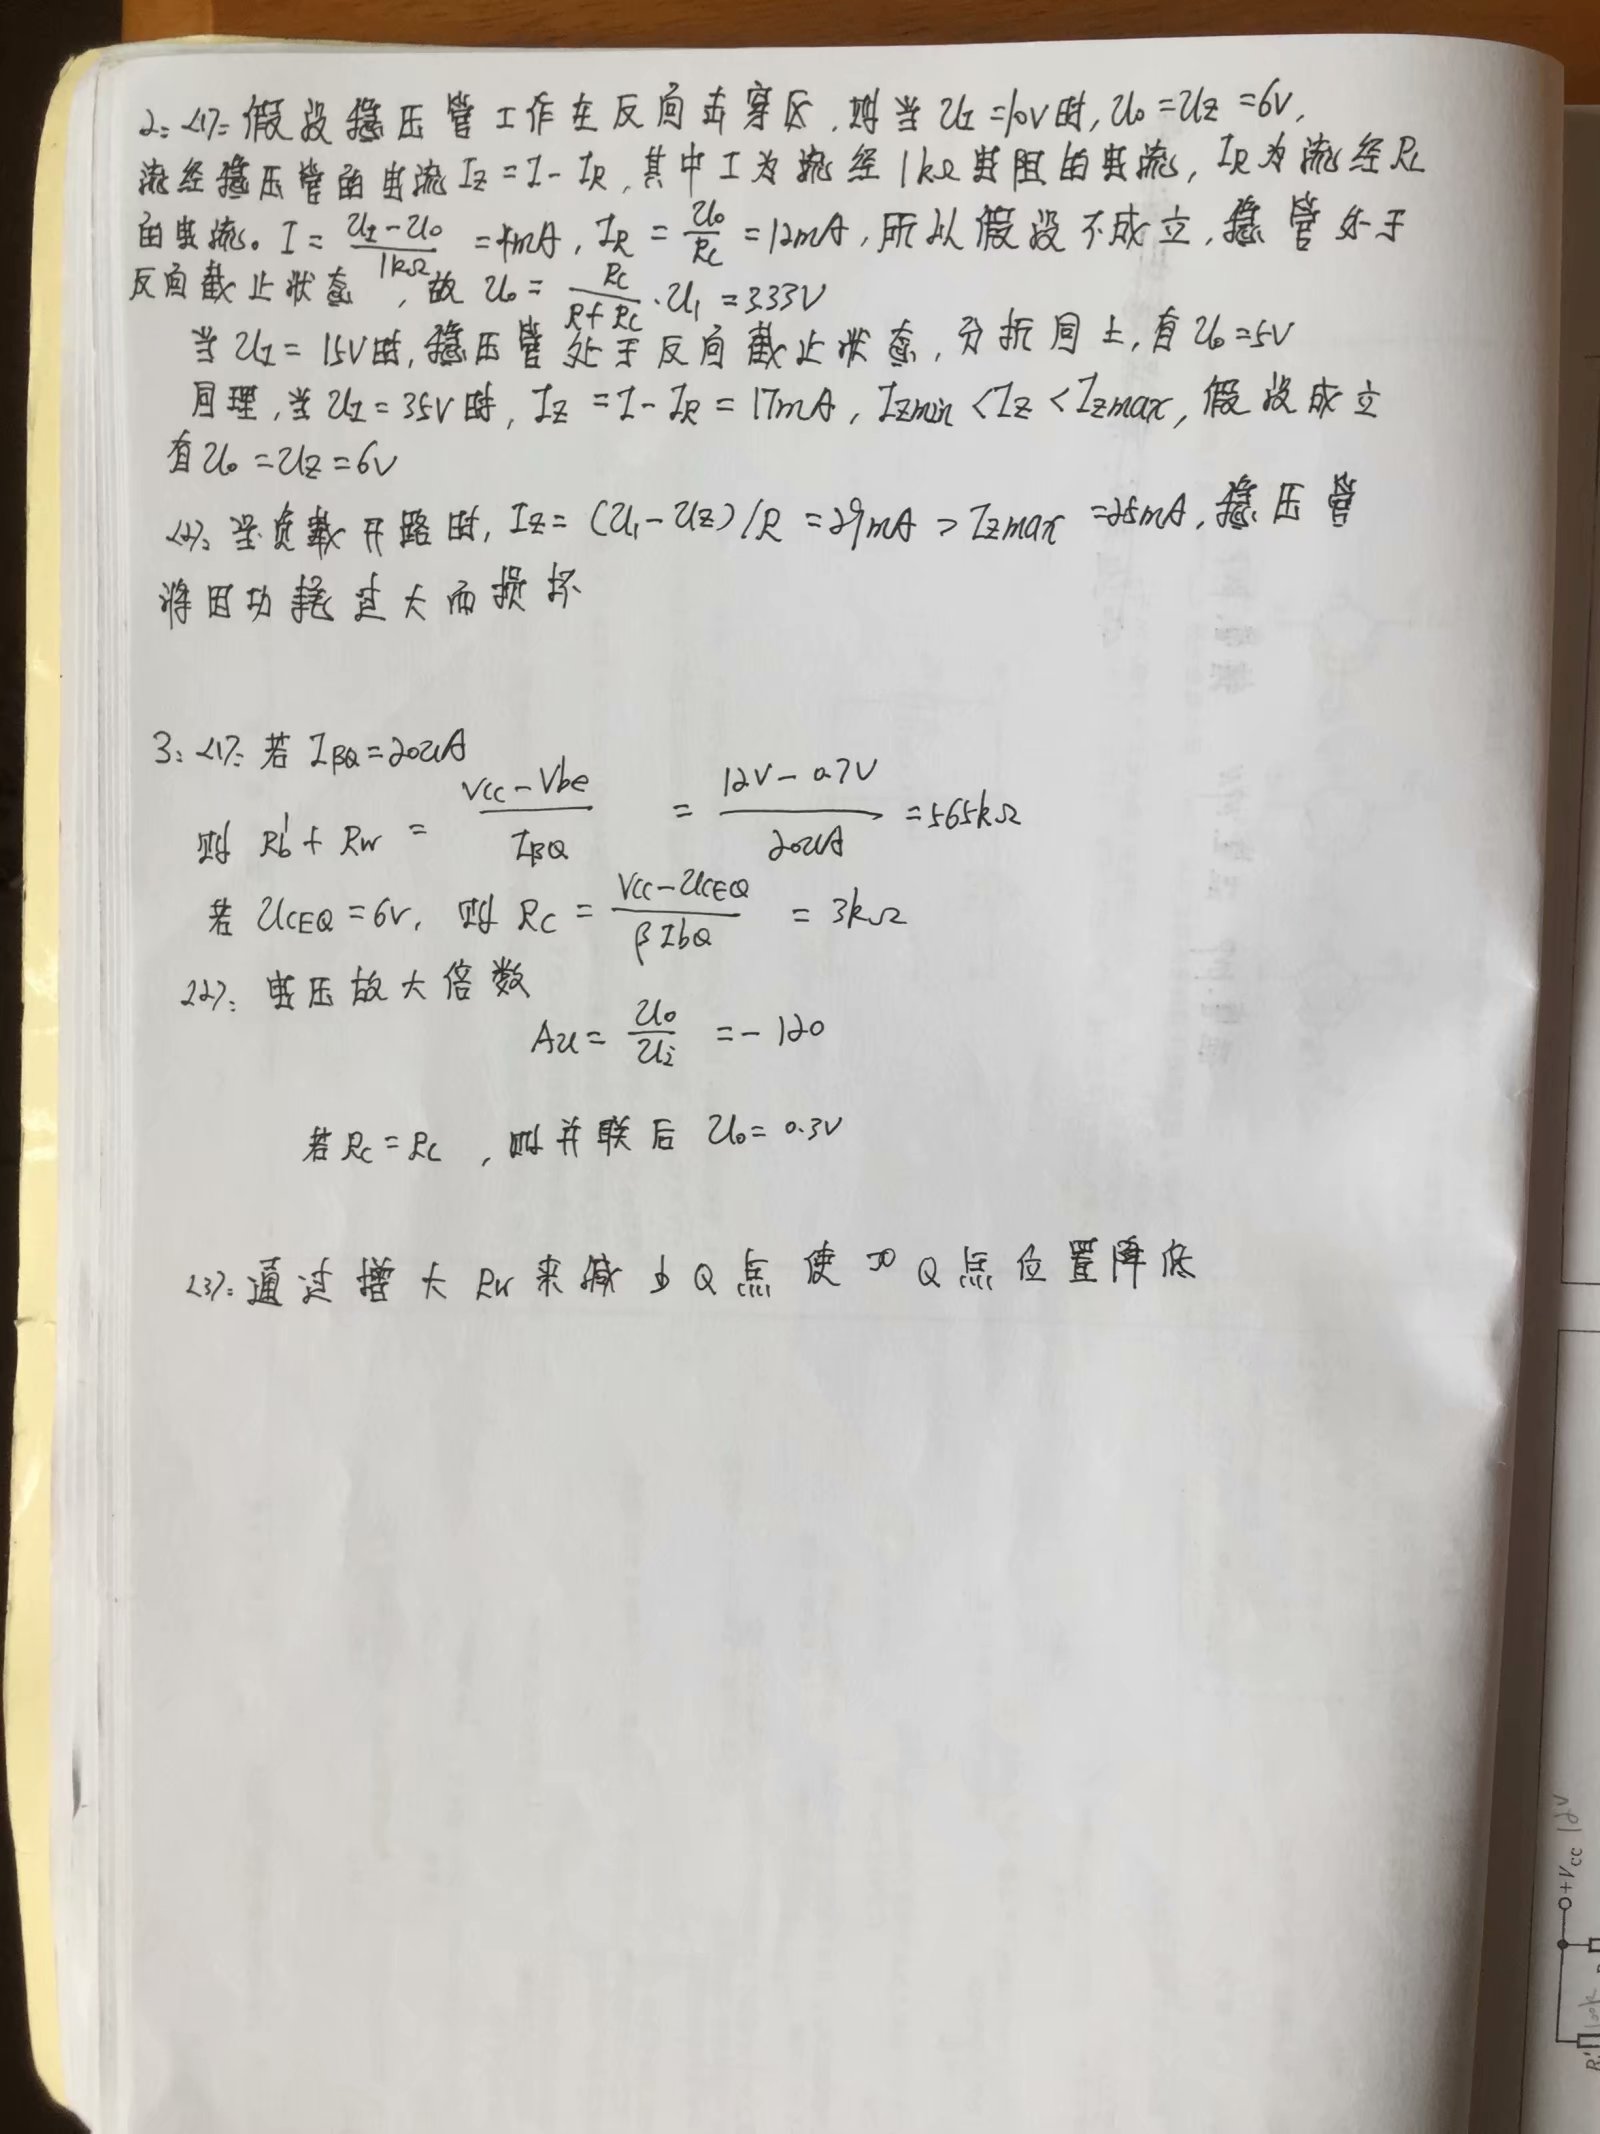 2: <1>: 假设稳压管工作在反向击穿区,则当UI=10V时,Uo=UZ=6V,
流经稳压管的电流IZ=I-IR,其中I为流经1kΩ电阻的电流,IR为流经RL
的电流。I=(UI-Uo)/1kΩ=4mA,IR=Uo/RL=12mA,所以假设不成立,稳管处于
反向截止状态,故Uo=RL/(R+RL)·UI=3.33V
当UI=15V时,稳压管处于反向截止状态,分析同上,有Uo=5V
同理,当UI=35V时,IZ=I-IR=17mA,IZmin<IZ<IZmax,假设成立
有Uo=UZ=6V
<2>: 当负载开路时,IZ=(UI-UZ)/R=29mA>IZmax=25mA,稳压管
将因功耗过大而损坏
3: <1>: 若IBQ=20uA
则Rb'+Rw=(Vcc-Vbe)/IBQ=(12V-0.7V)/20uA=565kΩ
若UCEQ=6V,则RC=(Vcc-UCEQ)/βIbQ=3kΩ
<2>: 电压放大倍数
Au=Uo/Ui=-120
若RC=RL,则并联后Uo=0.3V
<3>: 通过增大Rw来减少Q点使 Q点位置降低
+Vcc
12V
100k